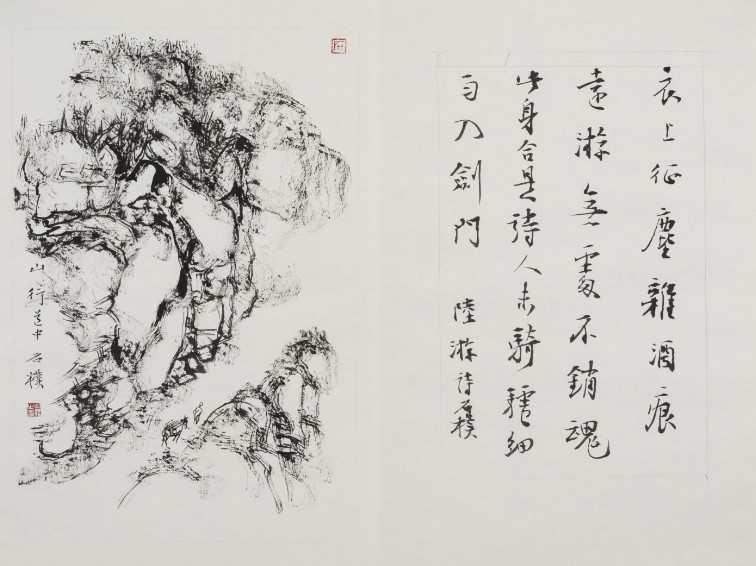 衣上征塵雜酒痕
遠游無處不銷魂
此身合是詩人未騎驢細
雨入劍門 陸游詩石樸
山行道中 石樸